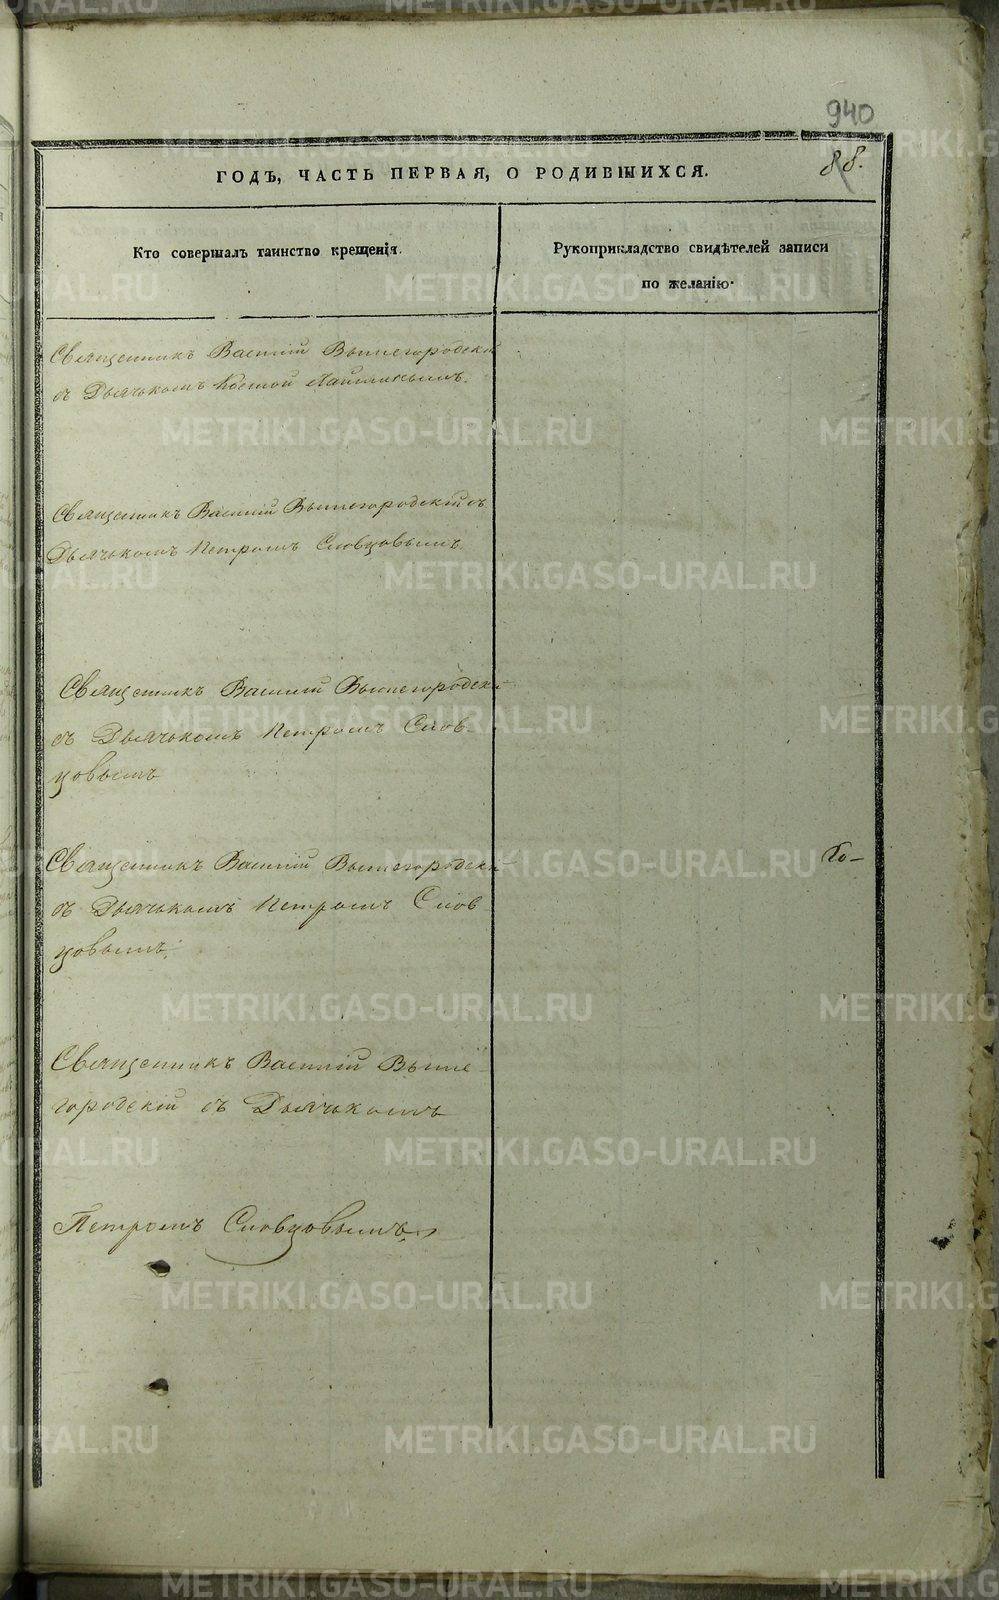 940
88.
ГОДЪ, ЧАСТЬ ПЕРВАЯ, О РОДИВШИХСЯ.
Кто совершалъ таинство крещенія.
Рукоприкладство свидѣтелей записи
по желанію.
Священникъ Василій Вышегородскій
съ Дьячькомъ
Священникъ Василій Вышегородскій съ
Дьячькомъ Петромъ Словцовымъ.
Священникъ Василій Вышегородскій
съ Дьячькомъ Петромъ Слов-
цовымъ
Священникъ Василій Вышегородскій
съ Дьячькомъ Петромъ Слов-
цовымъ.
Священникъ Василій Выше-
городскій съ Дьячькомъ
Петромъ Словцовымъ.
METRIKI.GASO-URAL.RU